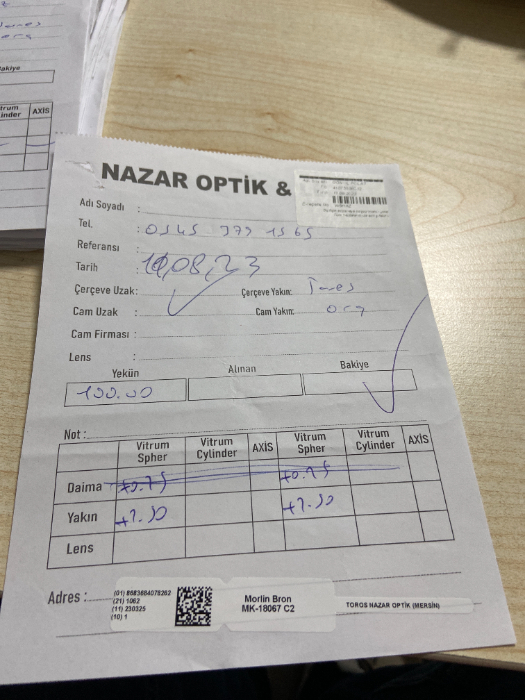 Bakiye
AXİS
NAZAR OPTİK &
Adı Soyadı :
Tel. : 0545 373 1565
Referansı :
Tarih : 10,08,23
Çerçeve Uzak: Çerçeve Yakın:
Cam Uzak : Cam Yakın: org
Cam Firması :
Lens :
Yekün Alınan Bakiye
100.00
Not :
Vitrum Spher Vitrum Cylinder AXİS Vitrum Spher Vitrum Cylinder AXİS
Daima +0.75 +0.75
Yakın
Lens
Adres :
(01) 8683684078262
(21) 1062
(11) 230325
(10) 1
Morlin Bron
MK-18067 C2
TOROS NAZAR OPTİK (MERSİN)